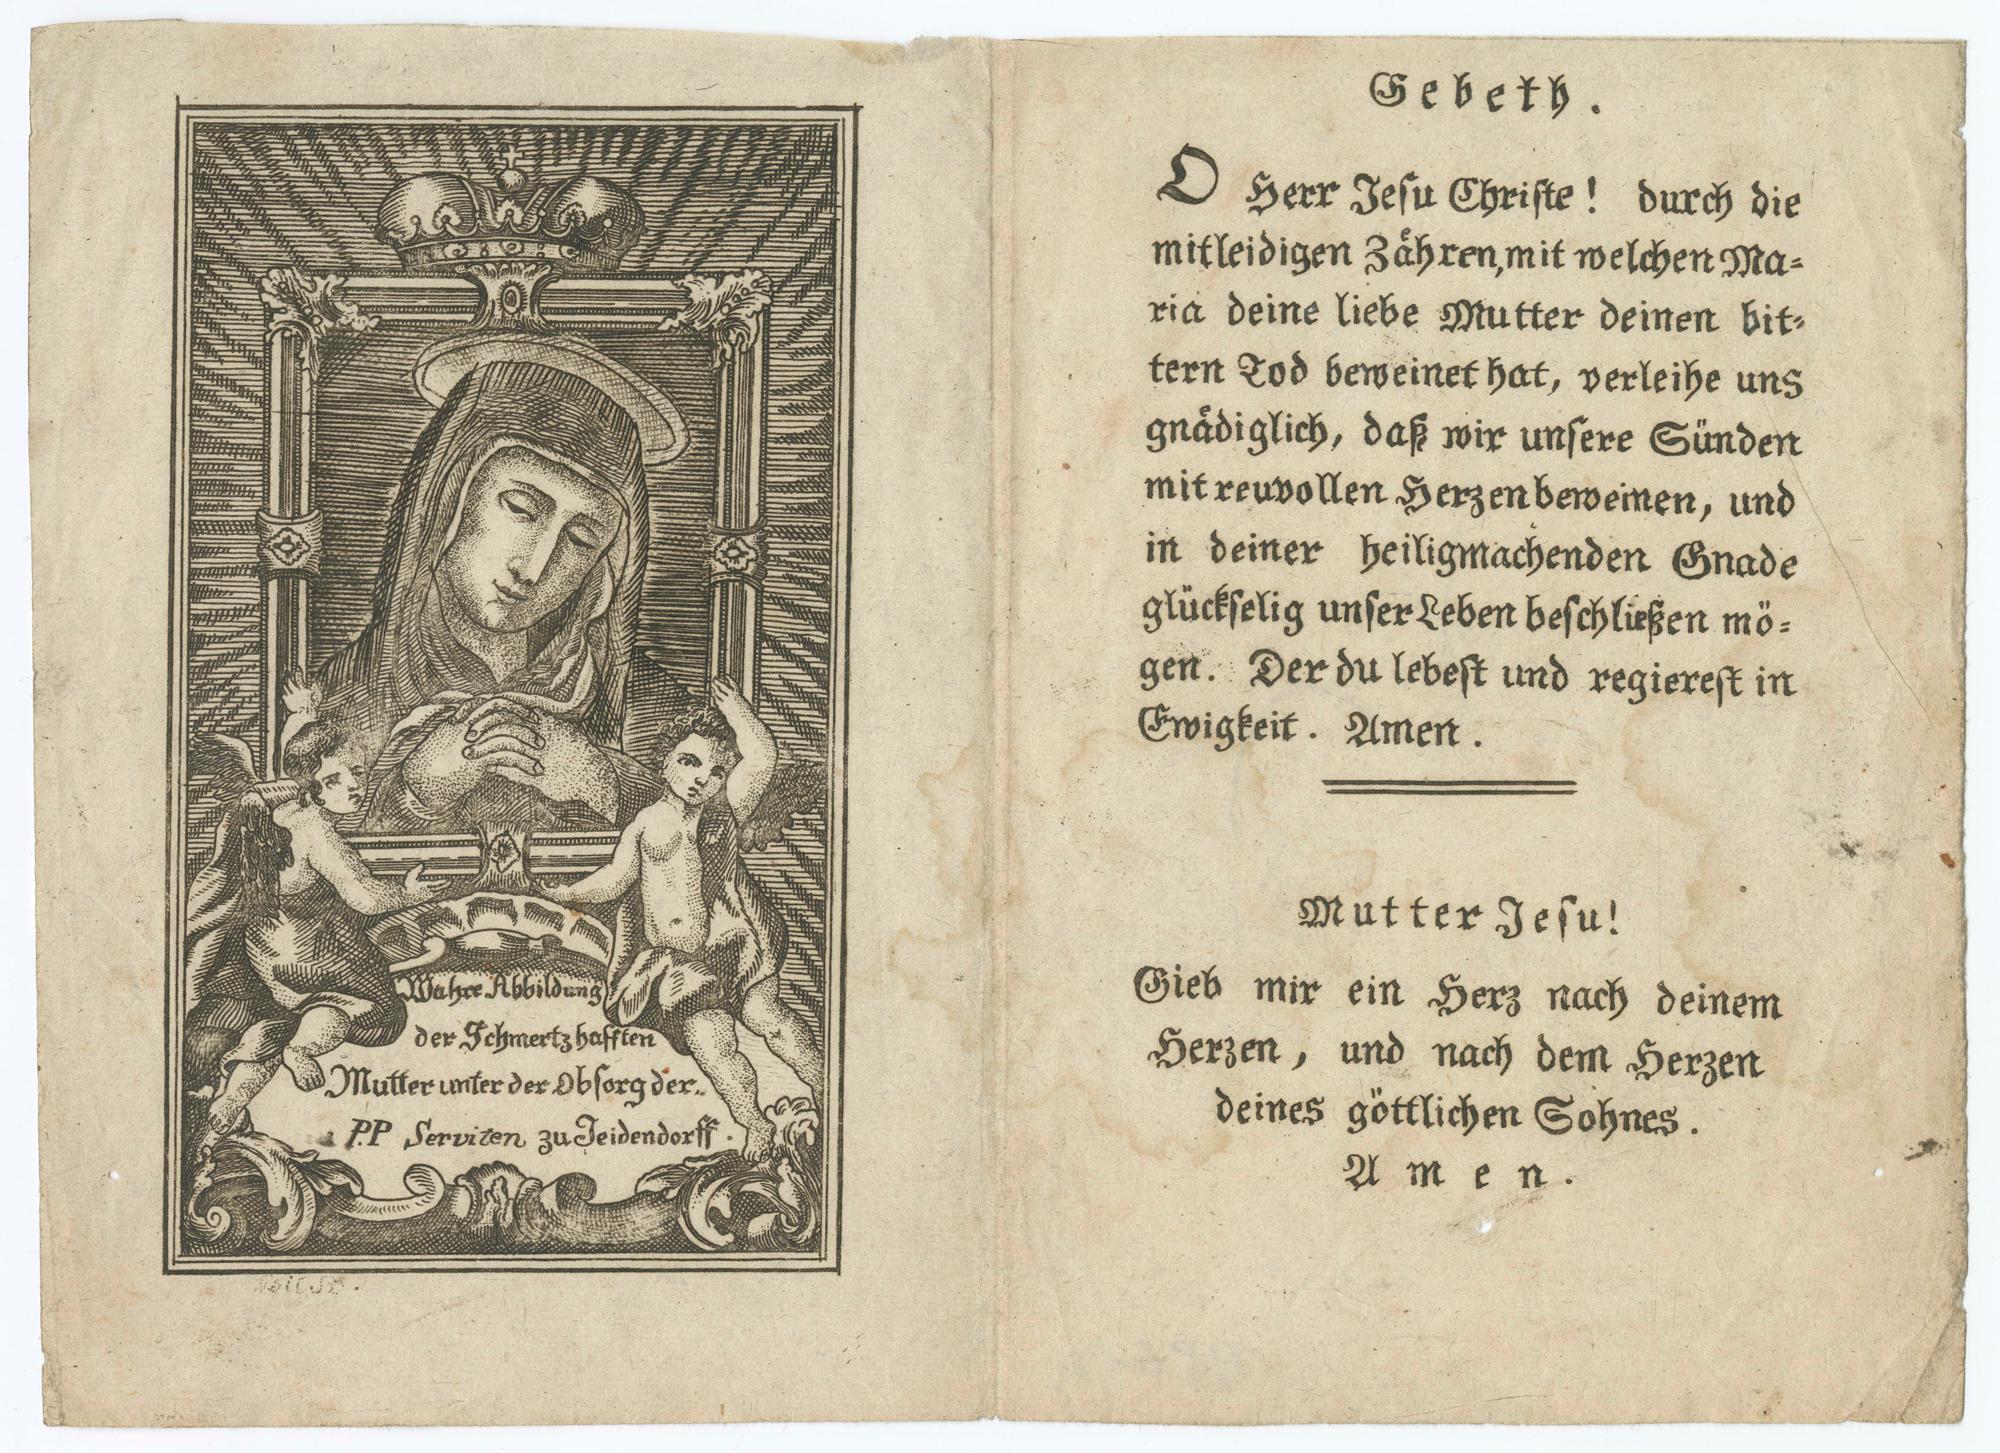 Wahre Abbildung
der Schmertzhafften
Mutter unter der Obsorg der
P.P Serviten zu Jeidendorff.
Gebeth.
O Herr Jesu Christe! durch die
mitleidigen Zähren, mit welchen Ma=
ria deine liebe Mutter deinen bit=
tern Tod beweinet hat, verleihe uns
gnädiglich, daß wir unsere Sünden
mit reuvollen Herzen beweinen, und
in deiner heiligmachenden Gnade
glückselig unser Leben beschließen mö=
gen. Der du lebest und regierest in
Ewigkeit. Amen.
Mutter Jesu!
Gieb mir ein Herz nach deinem
Herzen, und nach dem Herzen
deines göttlichen Sohnes.
Amen.